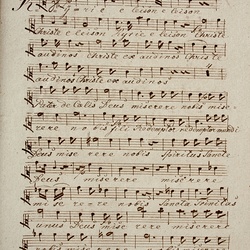 Kyrie eleison eleison
Christe eleison Kyrie eleison Christe
audi nos Christe exaudi nos Christe
audi nos Christe exaudi nos
Pater de Cælis Deus miserere nobis mise-
rere nobis fili Redemptor redemptor mundi
Deus mise rere nobis Spiritus Sancte
Deus miserere miserere
mise rere nobis Sancta Trinitas
unus Deus miserere misere
nobis miserere